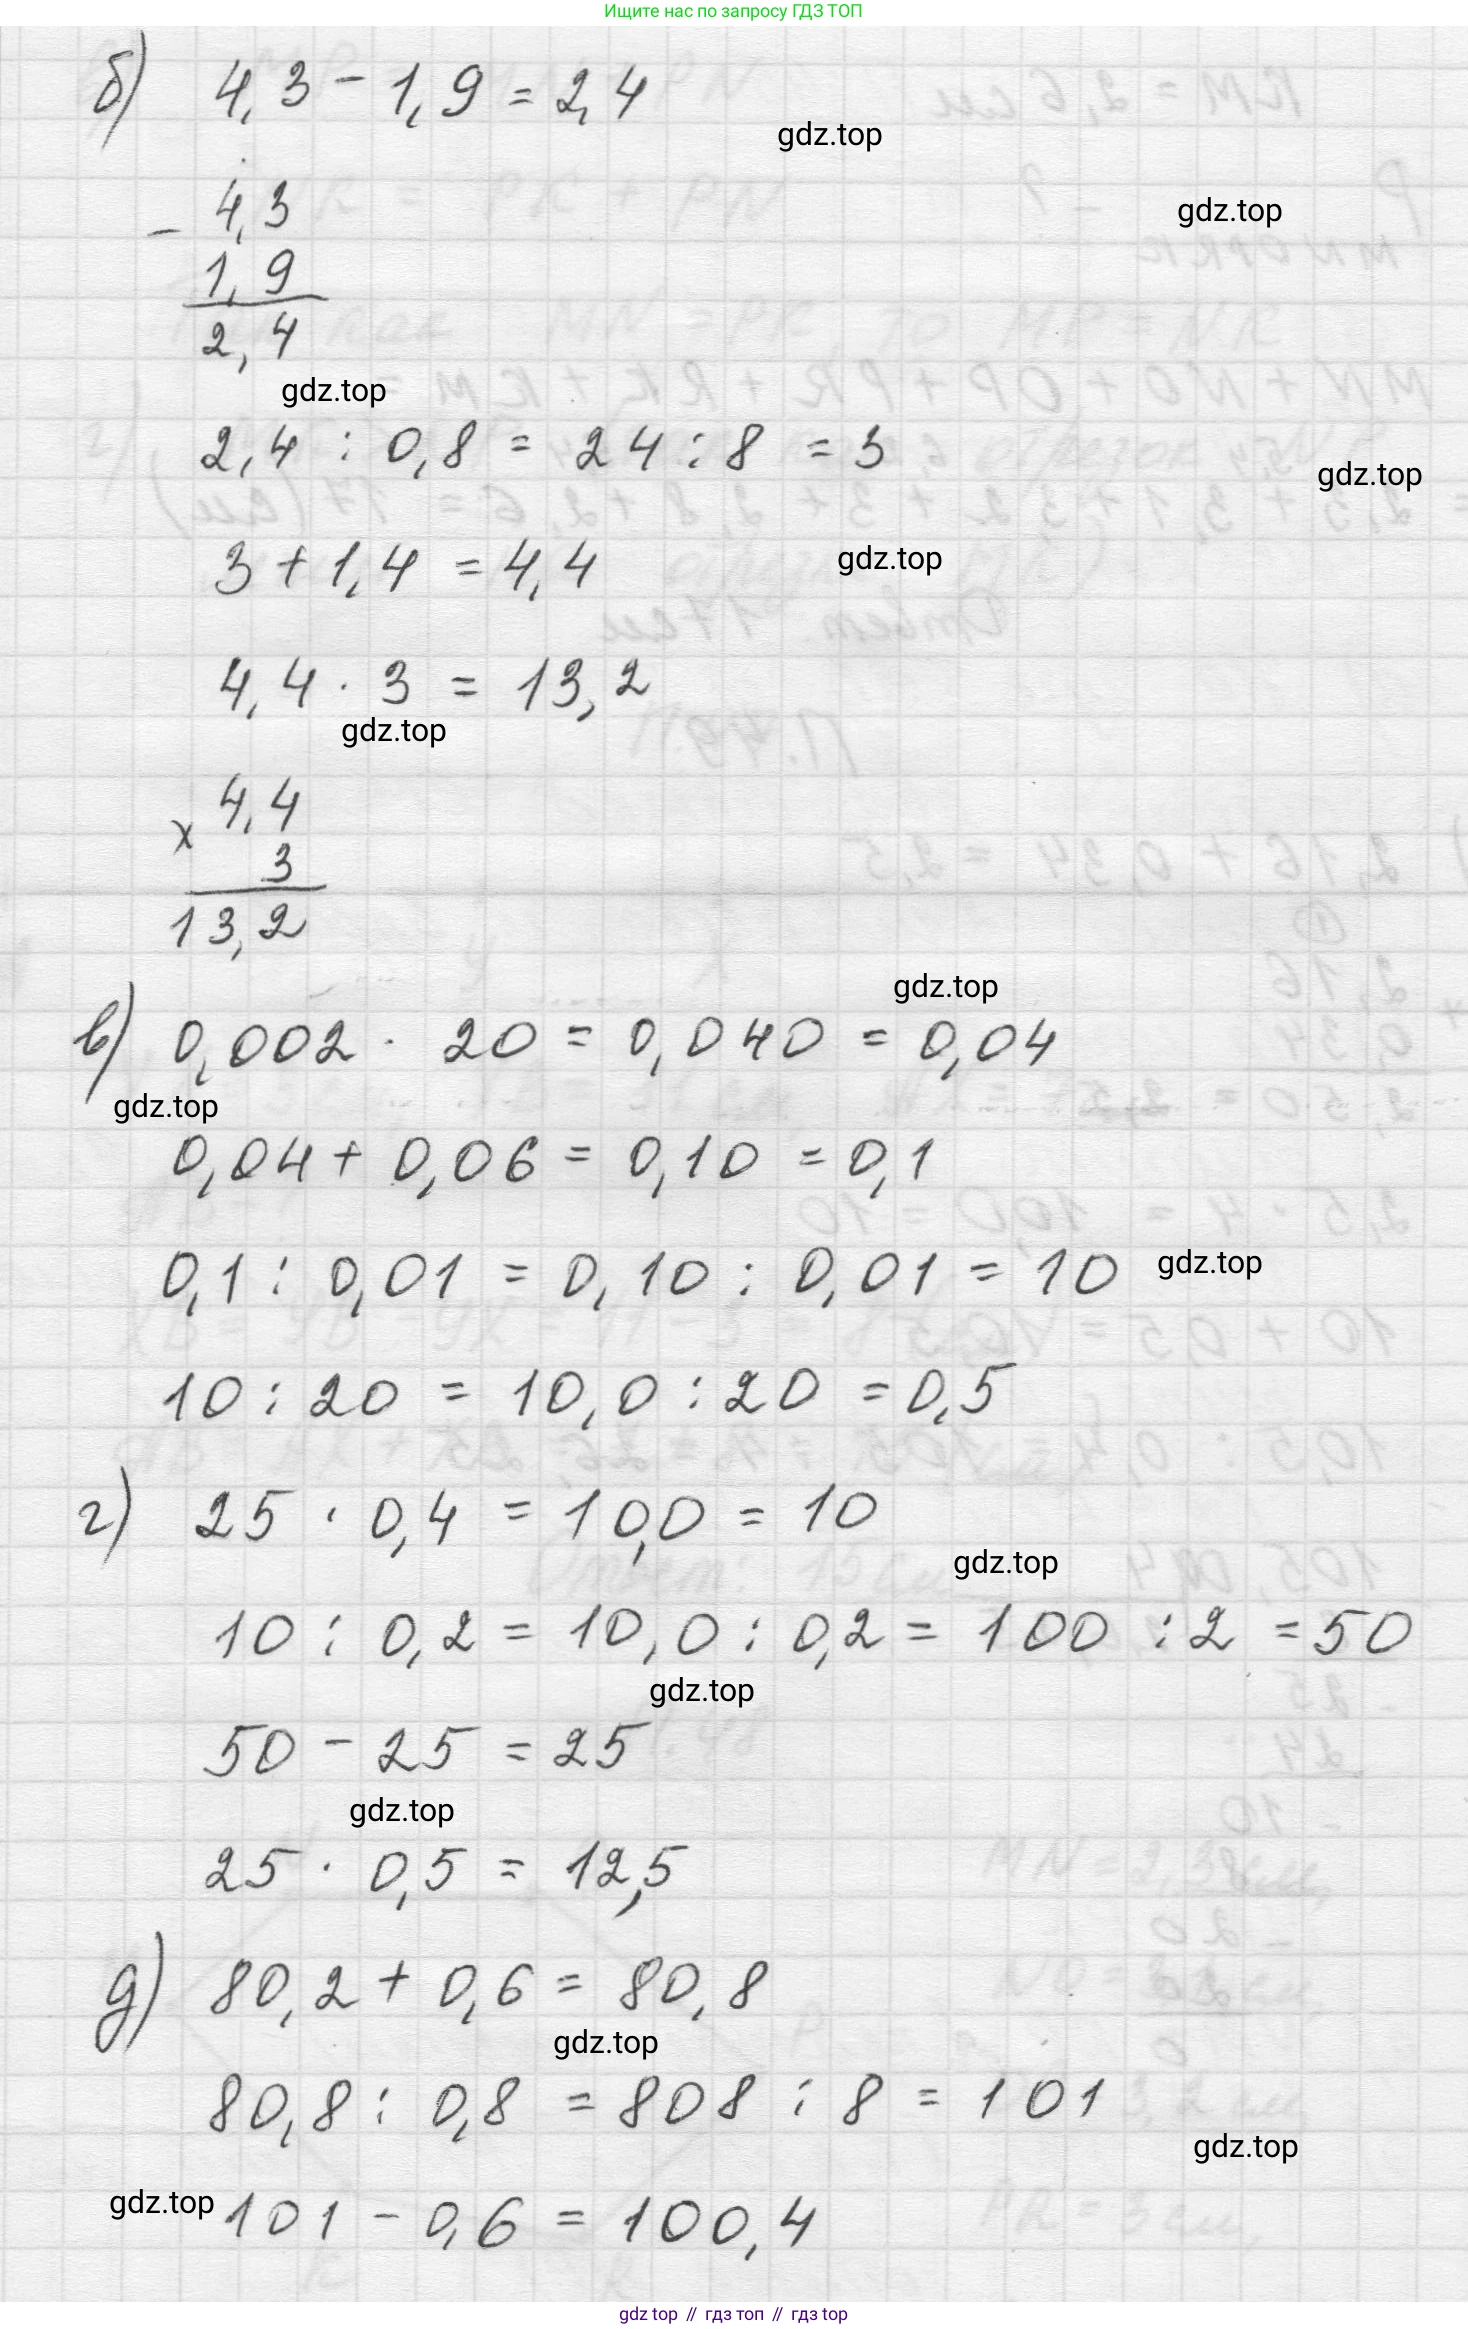 Ищите нас по запросу ГДЗ ТОП
б) 4,3 - 1,9 = 2,4
gdz.top
- 4,3
gdz.top
1,9
2,4
gdz.top
2,4 : 0,8 = 24 : 8 = 3
gdz.top
3 + 1,4 = 4,4
gdz.top
4,4 · 3 = 13,2
gdz.top
x 4,4
3
13,2
gdz.top
в) 0,002 · 20 = 0,040 = 0,04
gdz.top
0,04 + 0,06 = 0,10 = 0,1
0,1 : 0,01 = 0,10 : 0,01 = 10
gdz.top
10 : 20 = 10,0 : 20 = 0,5
г) 25 · 0,4 = 10,0 = 10
gdz.top
10 : 0,2 = 10,0 : 0,2 = 100 : 2 = 50
gdz.top
50 - 25 = 25
gdz.top
25 · 0,5 = 12,5
д) 80,2 + 0,6 = 80,8
gdz.top
80,8 : 0,8 = 808 : 8 = 101
gdz.top
gdz.top
101 - 0,6 = 100,4
gdz top // гдз топ // гдз top